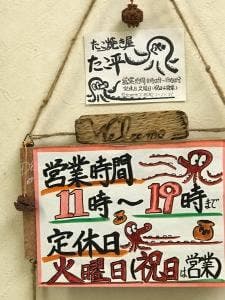 たこ焼き屋
たこ平
営業時間 11時〜19時
定休日 火曜日(祝日は営業)
Welcome
営業時間
11時〜19時まで
定休日
火曜日(祝日は営業)